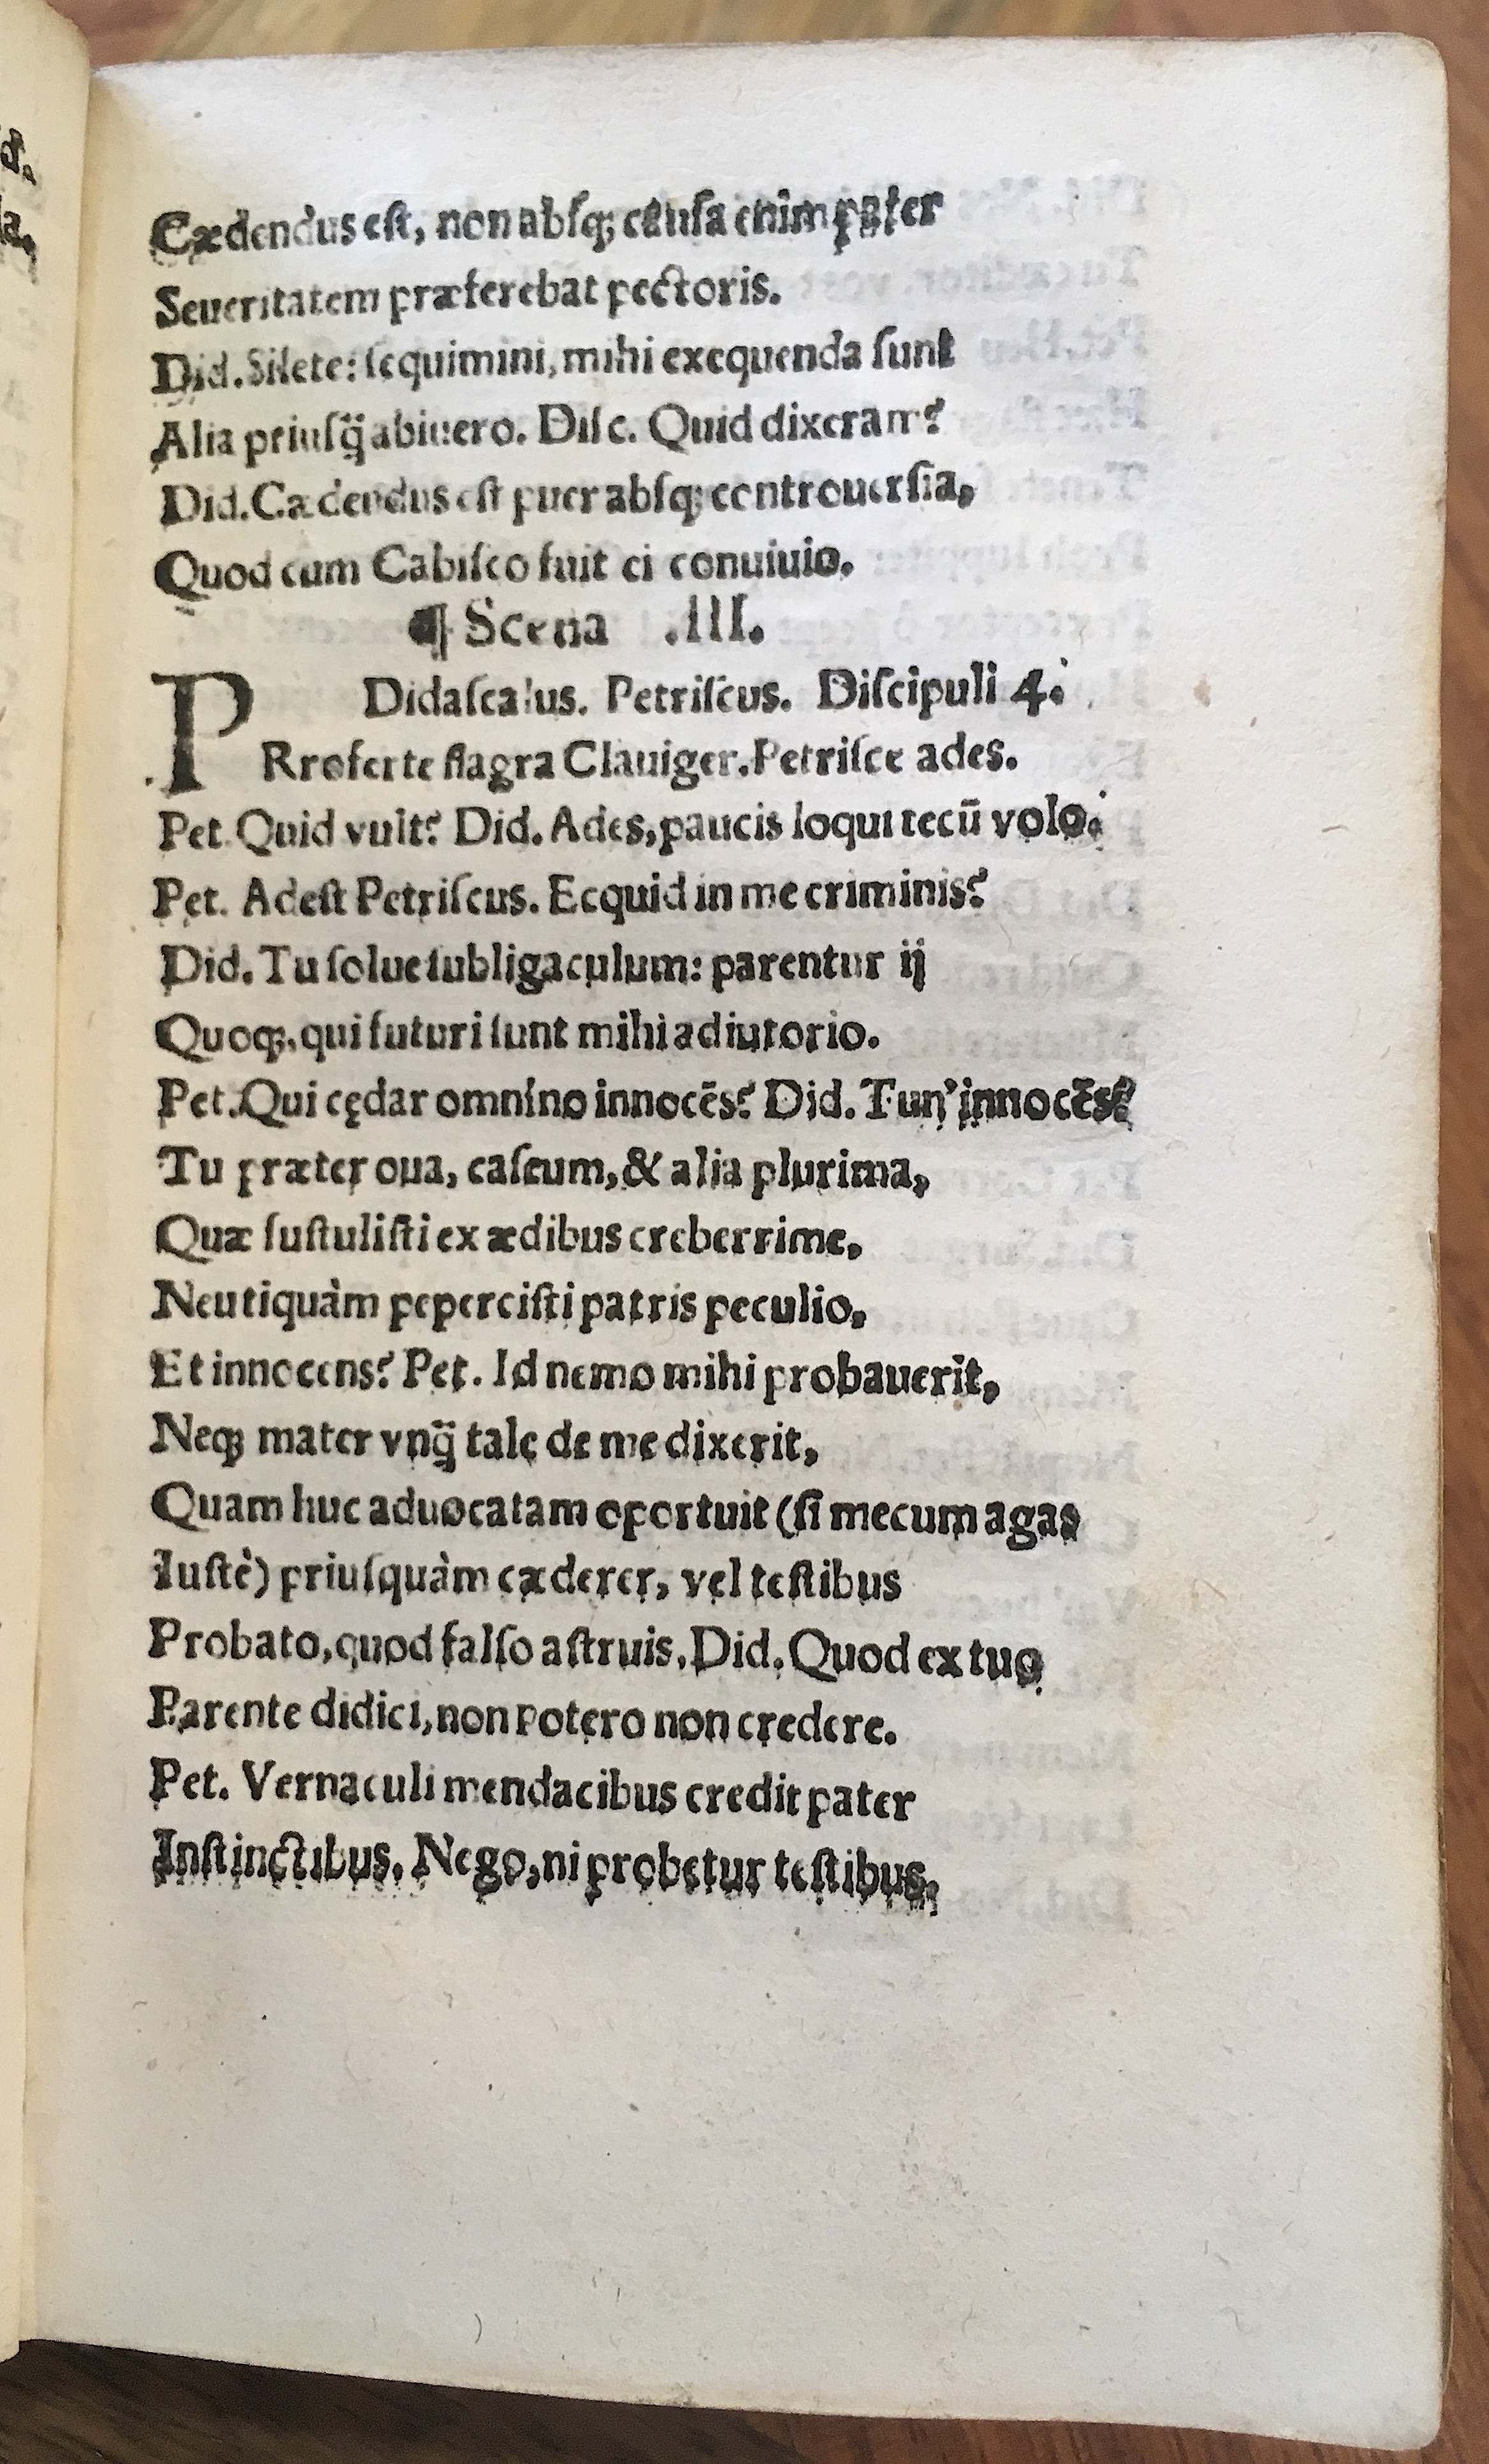 d.
la,
Cædendus eſt, non abſq; cauſa enim pater
Seueritatem præferebat pectoris.
Did. Silete: ſequimini, mihi exequenda ſunt
Alia priuſq̃ abiuero. Diſc. Quid dixeram?
Did. Cædendus eſt puer abſq; controuerſia,
Quod cum Cabiſco fuit ei conuiuio.
¶ Scena .III.
Didaſcalus. Petriſcus. Diſcipuli 4.
PRroferte flagra Clauiger. Petriſce ades.
Pet. Quid vult? Did. Ades, paucis loqui tecũ volo.
Pet. Adeſt Petriſcus. Ecquid in me criminis?
Did. Tu ſolue ſubligaculum: parentur ij
Quoq;, qui futuri ſunt mihi adiutorio.
Pet. Qui cędar omnino innocẽs? Did. Tun' innocẽs?
Tu præter oua, caſeum, & alia plurima,
Quæ ſuſtuliſti ex ædibus creberrime,
Neutiquàm peperciſti patris peculio,
Et innocens? Pet. Id nemo mihi probauerit,
Neq; mater vnq̃ tale de me dixerit,
Quam huc aduocatam oportuit (ſi mecum agas
Iuſtè) priuſquàm cæderer, vel teſtibus
Probato, quod falſo aſtruis. Did. Quod ex tuo
Parente didici, non potero non credere.
Pet. Vernaculi mendacibus credit pater
Inſtinctibus. Nego, ni probetur teſtibus.